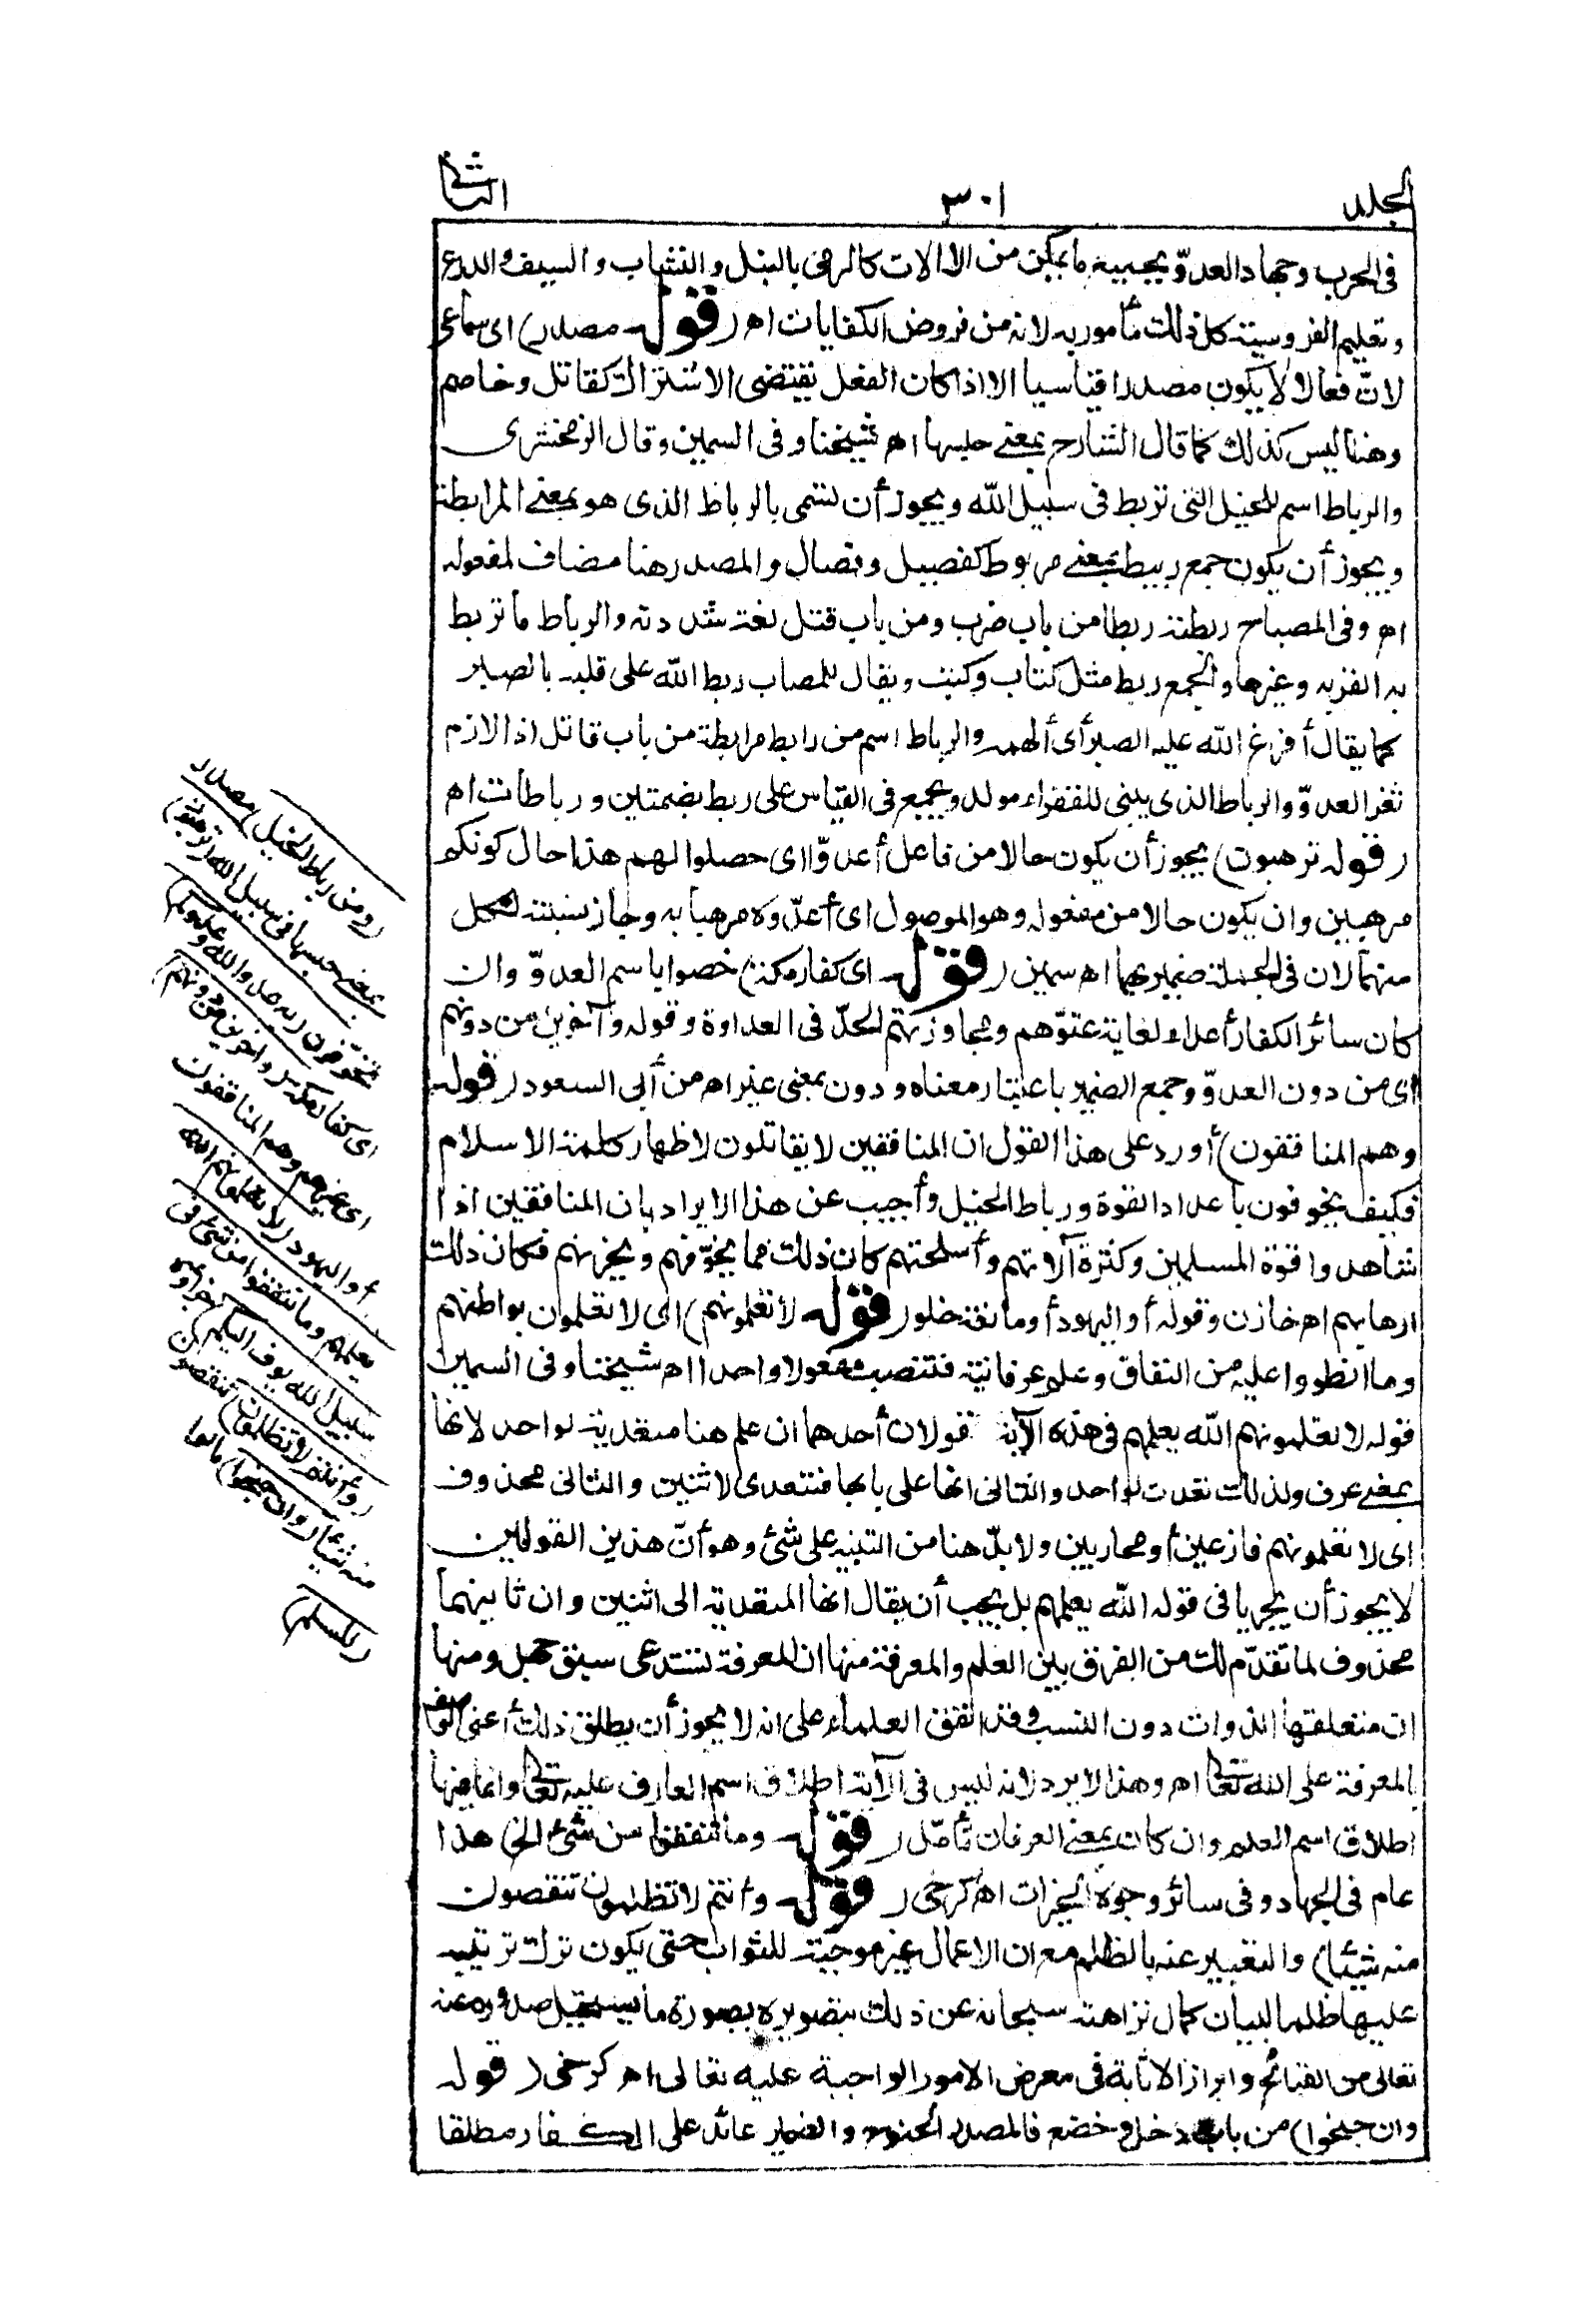 الجلد
٣٠١
الثاني
في الحرب وجهاد العدوّ يجب فيه ما يمكن من الالات كالرمي بالنبل والنشاب والسيف والدرع
وتعليم الفروسية كل ذلك مأمور به لانه من فروض الكفايات اه (قوله مصدر) اي سماعي
لانّ فعالا لا يكون مصدرا قياسيا الا اذا كان الفعل يقتضي الاشتراك كقاتل وخاصم
وهنا ليس كذلك كما قال الشارح بمعنى حبسها اه شيخنا وفي السمين وقال الزمخشري
والرباط اسم للخيل التي تربط في سبيل الله ويجوز أن تسمى بالرباط الذي هو بمعنى المرابطة
ويجوز أن يكون جمع ربيط بمعنى مربوط كفصيل وفصال والمصدر هنا مضاف لمفعوله
اه وفي المصباح ربطته ربطا من باب ضرب ومن باب قتل لغة شددته والرباط ما تربط
به القربة وغيرها والجمع ربط مثل كتاب وكتب ويقال للمصاب ربط الله على قلبه بالصبر
كما يقال أفرغ الله عليه الصبر أي ألهمه والرباط اسم من رابط مرابطة من باب قاتل اذا لازم
ثغر العدوّ والرباط الذي يبنى للفقراء مولد ويجمع في القياس على ربط بضمتين ورباطات اه
(قوله ترهبون) يجوز أن يكون حالا من فاعل أعدّوا اي حصلوا لهم هذا حال كونكم
مرهبين وان يكون حالا من مفعوله وهو الموصول اي أعدّوه مرهبا به وجاز نسبته لكل
منهما لان في الجملة ضميريهما اه سمين (قوله اي كفار مكة) خصوا باسم العدوّ وان
كان سائر الكفار أعداء لغاية عتوّهم ومجاوزتهم الحدّ في العداوة وقوله وآخرين من دونهم
اي من دون العدوّ وجمع الضمير باعتبار معناه ودون بمعنى غير اه من أبي السعود (قوله
وهم المنافقون) أورد على هذا القول ان المنافقين لا يقاتلون لاظهار كلمة الاسلام
فكيف يخوفون باعداد القوة ورباط الخيل وأجيب عن هذا الايراد بان المنافقين اذا
شاهدوا قوة المسلمين وكثرة آلاتهم وأسلحتهم كان ذلك مما يخوّفهم ويحزنهم فكان ذلك
ارهابهم اه خازن وقوله أو اليهود أو مانعة خلو (قوله لا تعلمونهم) اي لا تعلمون بواطنهم
وما انطووا عليه من النفاق وعلم عرفانية فتنصب مفعولا واحدا اه شيخنا وفي السمين
قوله لا تعلمونهم الله يعلمهم في هذه الآية قولان أحدهما ان علم هنا متعدية لواحد لانها
بمعنى عرف ولذلك تعدت لواحد والثاني انها على بابها فتتعدى لاثنين والثاني محذوف
اي لا تعلمونهم فازعين أو محاربين ولا بدّ هنا من التنبيه على شئ وهو أنّ هذين القولين
لا يجوز أن يجريا في قوله الله يعلمهم بل يجب أن يقال انها المتعدية الى اثنين وان ثانيهما
محذوف لما تقدّم لك من الفرق بين العلم والمعرفة منها ان المعرفة تستدعي سبق جهل ومنها
ان متعلقتها الذوات دون النسب وقد اتفق العلماء على انه لا يجوز أن يطلق ذلك أعني الوصف
بالمعرفة على الله تعالى اه وهذا لا يرد لانه ليس في الآية اطلاق اسم العارف عليه تعالى وانما فيها
اطلاق اسم العلم وان كان بمعنى العرفان تأمّل (قوله وما تنفقوا من شئ الخ) هذا
عام في الجهاد وفي سائر وجوه الخيرات اه كرخي (قوله وأنتم لا تظلمون تنقصون
منه شيئا) والتعبير عنه بالظلم مع ان الاعمال غير موجبة للثواب حتى يكون ترك ترتيبه
عليها ظلما لبيان كمال نزاهته سبحانه عن ذلك بتصويره بصورة ما يستحيل صدوره عنه
تعالى من القبائح وابراز الاثابة في معرض الامور الواجبة عليه تعالى اه كرخي (قوله
وان جنحوا) من باب دخل وخضع فالمصدر الجنوح والضمير عائد على الكفار مطلقا
(ومن رباط الخيل) مصدر
بمعنى حبسها في سبيل الله (ترهبون)
تخوّفون (به عدو الله وعدوكم)
اي كفار مكة (وآخرين من دونهم)
اي غيرهم وهم المنافقون
أو اليهود (لا تعلمونهم الله
يعلمهم وما تنفقوا من شئ في
سبيل الله يوف اليكم) جزاؤه
(وأنتم لا تظلمون) تنقصون
منه شيئا (وان جنحوا) مالوا
(للسلم)